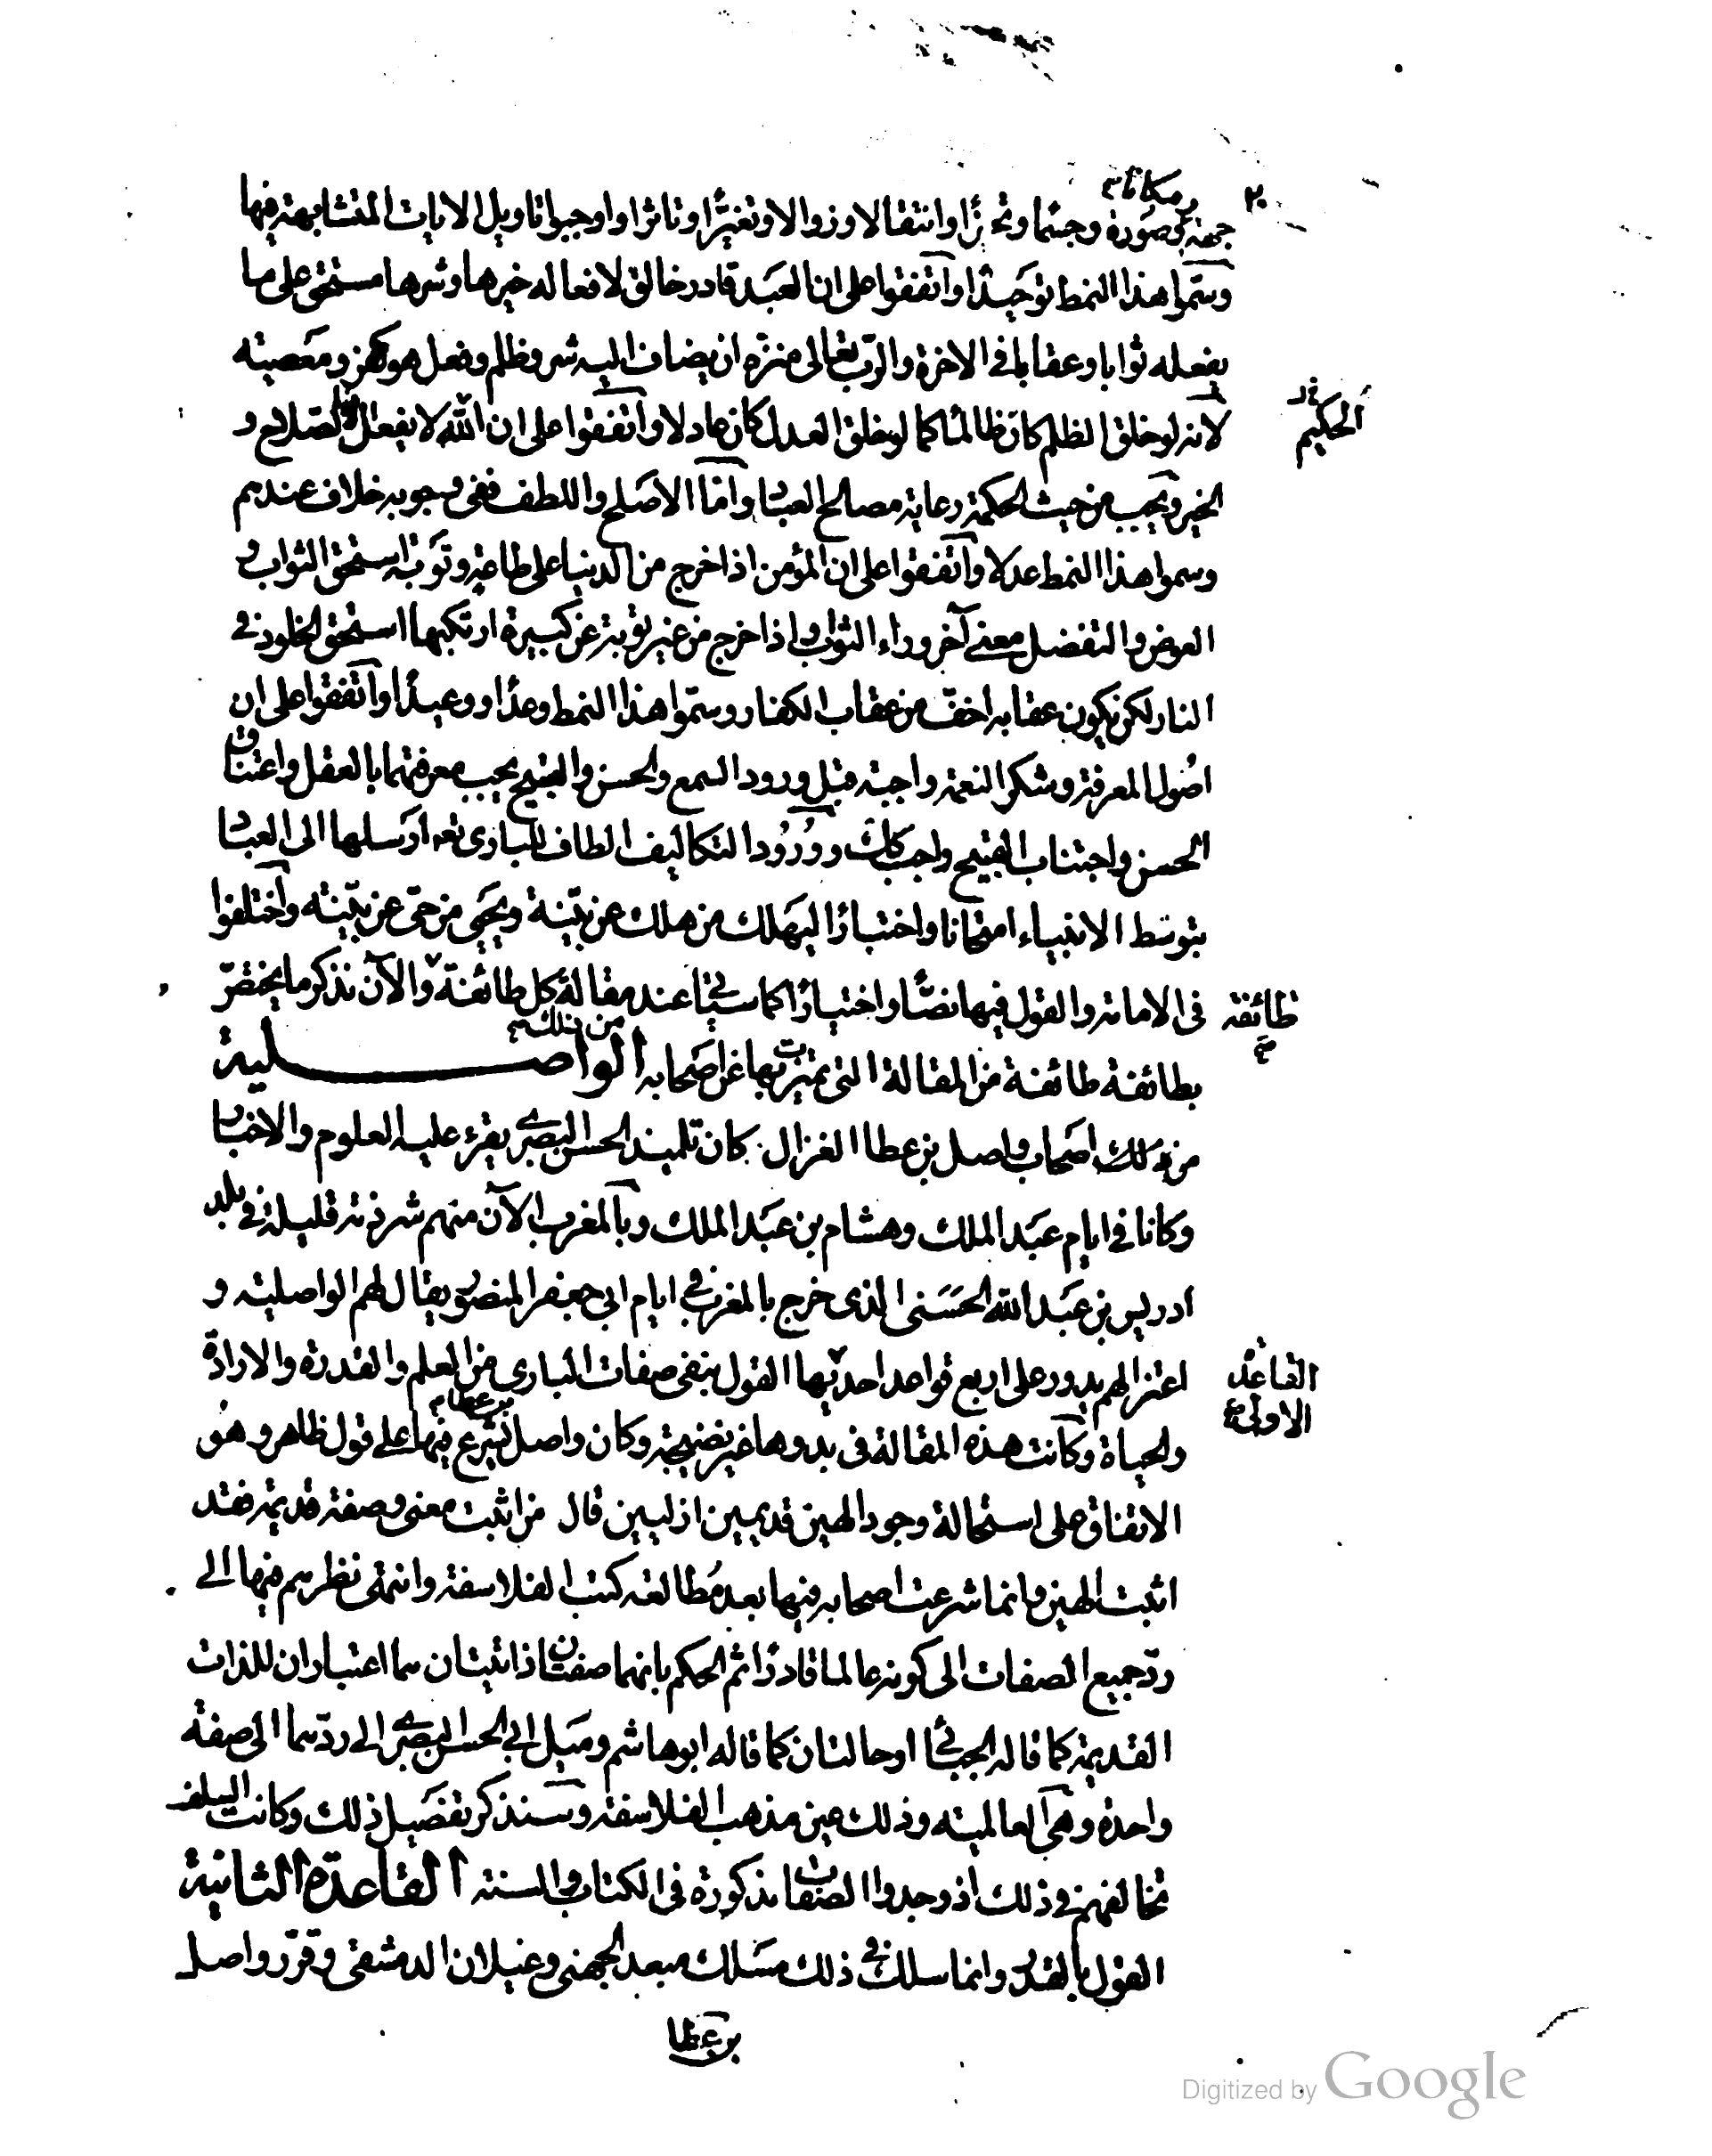 ٢٠
ومكانا
جهة وصورة وجسما وتحيزا وانتقالا وزوالا وتغيرا وتاثرا واوجبوا تاويل الايات المتشابهة فيها
وسموا هذا النمط توحيدا واتفقوا على ان العبد قادر خالق لافعاله خيرها وشرها مستحق على ما
يفعله ثوابا وعقابا فى الاخرة والرب تعالى منزه ان يضاف اليه شر وظلم وفعل هو كفر ومعصيته
لانه لو خلق الظلم كان ظالما كما لو خلق العدل كان عادلا واتفقوا على ان الله لا يفعل الا الصلاح و
الحكيم
الخير ويجب من حيث الحكمة رعاية مصالح العباد واما الاصلح واللطف ففى وجوبه خلاف عندهم
وسموا هذا النمط عدلا واتفقوا على ان المؤمن اذا خرج من الدنيا على طاعة وتوبة استحق الثواب و
العوض والتفضل معنى آخر وراء الثواب واذا خرج من غير توبة عن كبيرة ارتكبها استحق الخلود فى
النار لكن يكون عقابه اخف من عقاب الكفار وسموا هذا النمط وعدا ووعيدا واتفقوا على ان
اصول المعرفة وشكر النعمة واجبة قبل ورود السمع والحسن والقبيح يجب معرفتهما بالعقل واعتناق
الحسن واجتناب القبيح واجب كذلك وورود التكاليف الطاف للبارى تعه ارسلها الى العباد
بتوسط الانبياء امتحانا واختبارا ليهلك من هلك عن بينة ويحيى من حى عن بينه واختلفوا
فى الامامة والقول فيها نصا واختيارا كما سيأتى عند مقالة كل طائفة والآن نذكر ما يختص
طائفة صح
من ذلك
بطائفة طائفة من المقالة التى تميزت بها عن اصحابه الواصلية
من ذلك اصحاب واصل بن عطا الغزال كان تلميذ الحسن البصرى يقرء عليه العلوم والاخبار
وكانا فى ايام عبد الملك وهشام بن عبد الملك وبالمغرب الآن منهم شرذمة قليلة فى بلد
ادريس بن عبد الله الحسنى الذى خرج بالمغرب فى ايام ابى جعفر المنصور يقال لهم الواصلية و
اعتزالهم يدور على اربع قواعد احديها القول بنفى صفات البارى من العلم والقدرة والارادة
القاعدة
الاولى
بن عطا
والحياة وكانت هذه المقالة فى بدوها غير نضيجة وكان واصل يشرع فيها على قول ظاهر وهو
الاتفاق على استحالة وجود الهين قديمين ازليين قال من اثبت معنى وصفة قديمة فقد
اثبت الهين وانما شرعت اصحابه فيها بعد مطالعة كتب الفلاسفة وانتهى نظرهم فيها الى
رد جميع الصفات الى كونه عالما قادرا ثم الحكم بانهما صفتان ذاتيتان هما اعتباران للذات
القديمة كما قاله الجبائى او حالتان كما قاله ابو هاشم وميل ابى الحسن البصرى الى ردهما الى صفة
واحدة وهى العالمية وذلك عين مذهب الفلاسفة وسنذكر تفصيل ذلك وكانت السلف
تخالفهم فى ذلك اذ وجدوا الصفات مذكورة فى الكتاب والسنة القاعدة الثانية
القول بالقدر وانما سلك فى ذلك مسلك معبد الجهنى وغيلان الدمشقى وقرر واصل
بن عطا
Digitized by Google